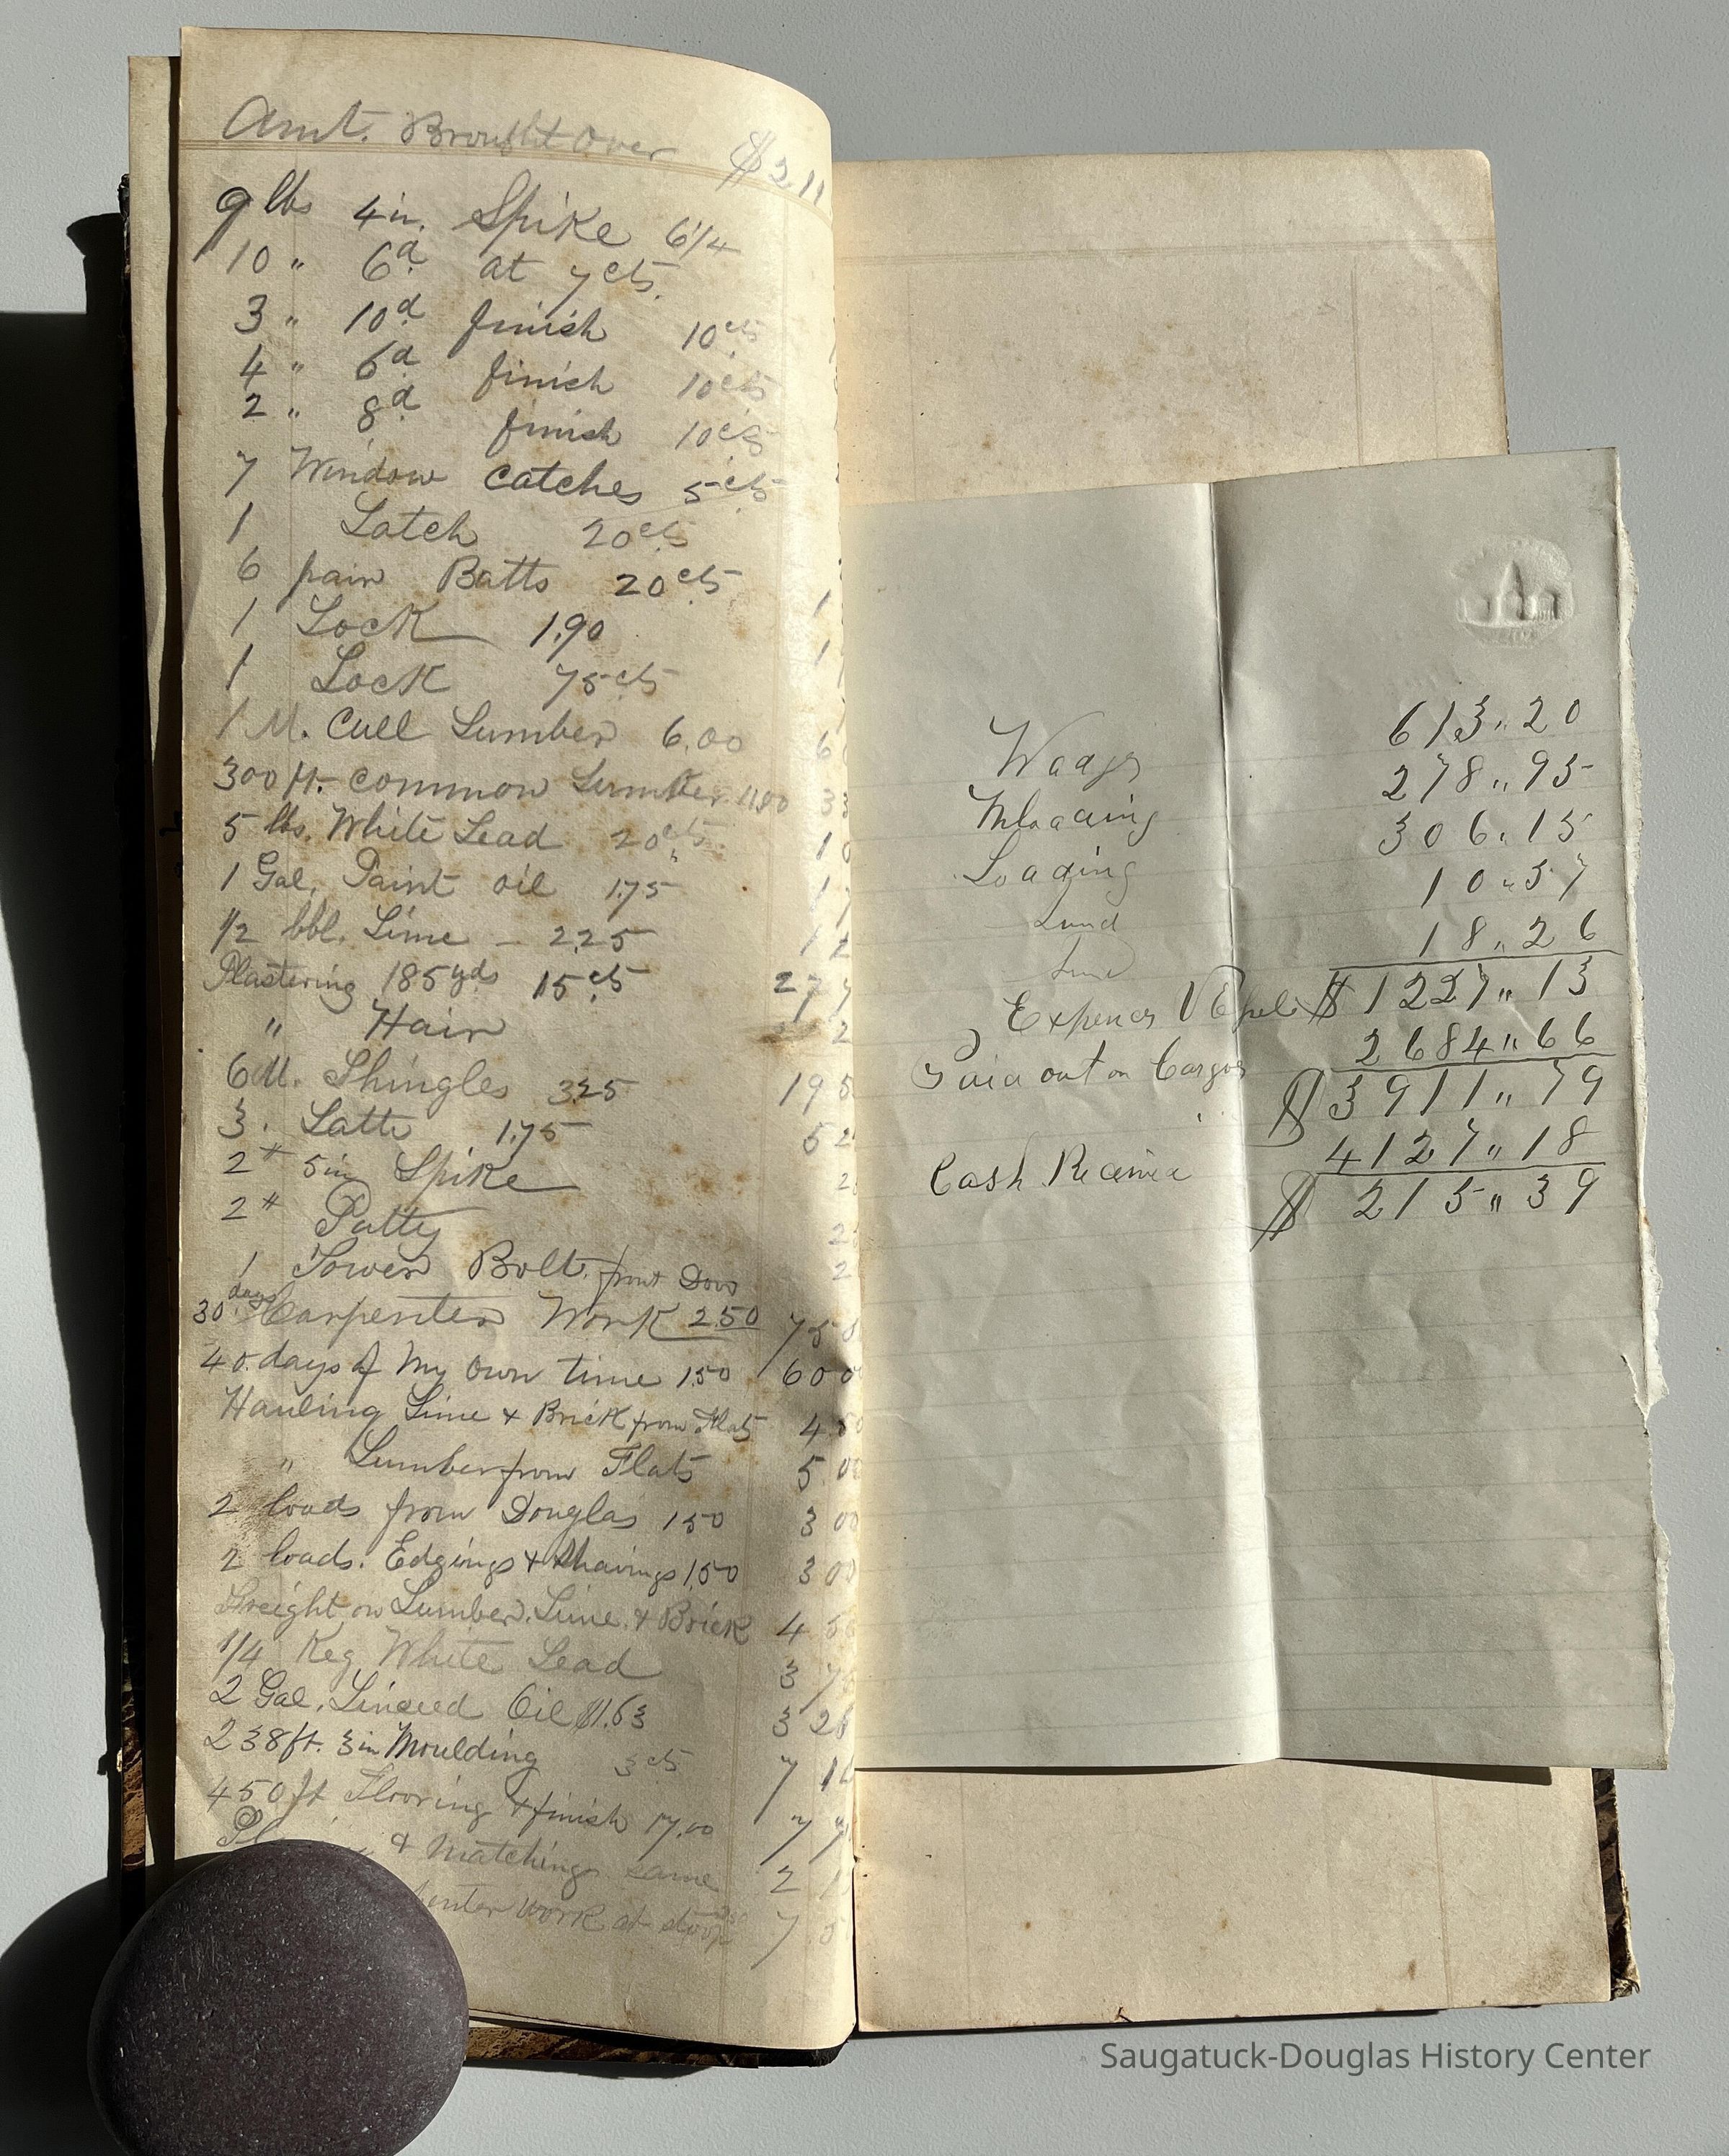 Amt. Brought Over $211
9 lbs 4 in. Spike 6 1/4
10 " 6d at 7 cts.
3 " 10d finish 10 cts
4 " 6d finish 10 cts
2 " 8d finish 10 cts
7 Window catches 5 cts
1 Latch 20 cts
6 pair Batts 20 cts 1
1 Lock 1.90 1
1 Lock 75 cts
1 M. Cull Lumber 6.00 6
300 ft. common Lumber 11.00 3 3
5 lbs. White Lead 20 cts. 1 0
1 Gal. Paint oil 1.75 1 7
1/2 bbl. Lime - 2.25 1
Plastering 185 yds 15 cts 27 7
" Hair 2
6 M. Shingles 3.25 19 5
3. Latts 1.75 5 2
2 # 5 in Spike 2
2 # Putty 2
1 Tower Bolt. front Door 2
30 days Carpenter Work 2.50 75 0
40. days of My Own time 1.50 60 0
Hauling Lime & Brick from Flats 4.00
" Lumber from Flats 5.00
2 loads from Douglas 1.50 3 00
2 loads. Edgings & Shavings 1.50 3 00
Freight on Lumber. Lime. & Brick 4 50
1/4 Keg White Lead 3 75
2 Gal. Linseed Oil $1.63 3 26
238 ft. 3 in Moulding 3 cts 7 14
450 ft Flooring & finish 17.00 7
& matching same 2
work at stoop 7 5
613.. 20
Wadgs 278.. 95
Unloading 306.. 15
Loading 10.. 57
18.. 26
Expences $1227.. 13
Paid out on Cargos 2684.. 66
$3911.. 79
Cash Receive 4127.. 18
$215.. 39
Saugatuck-Douglas History Center